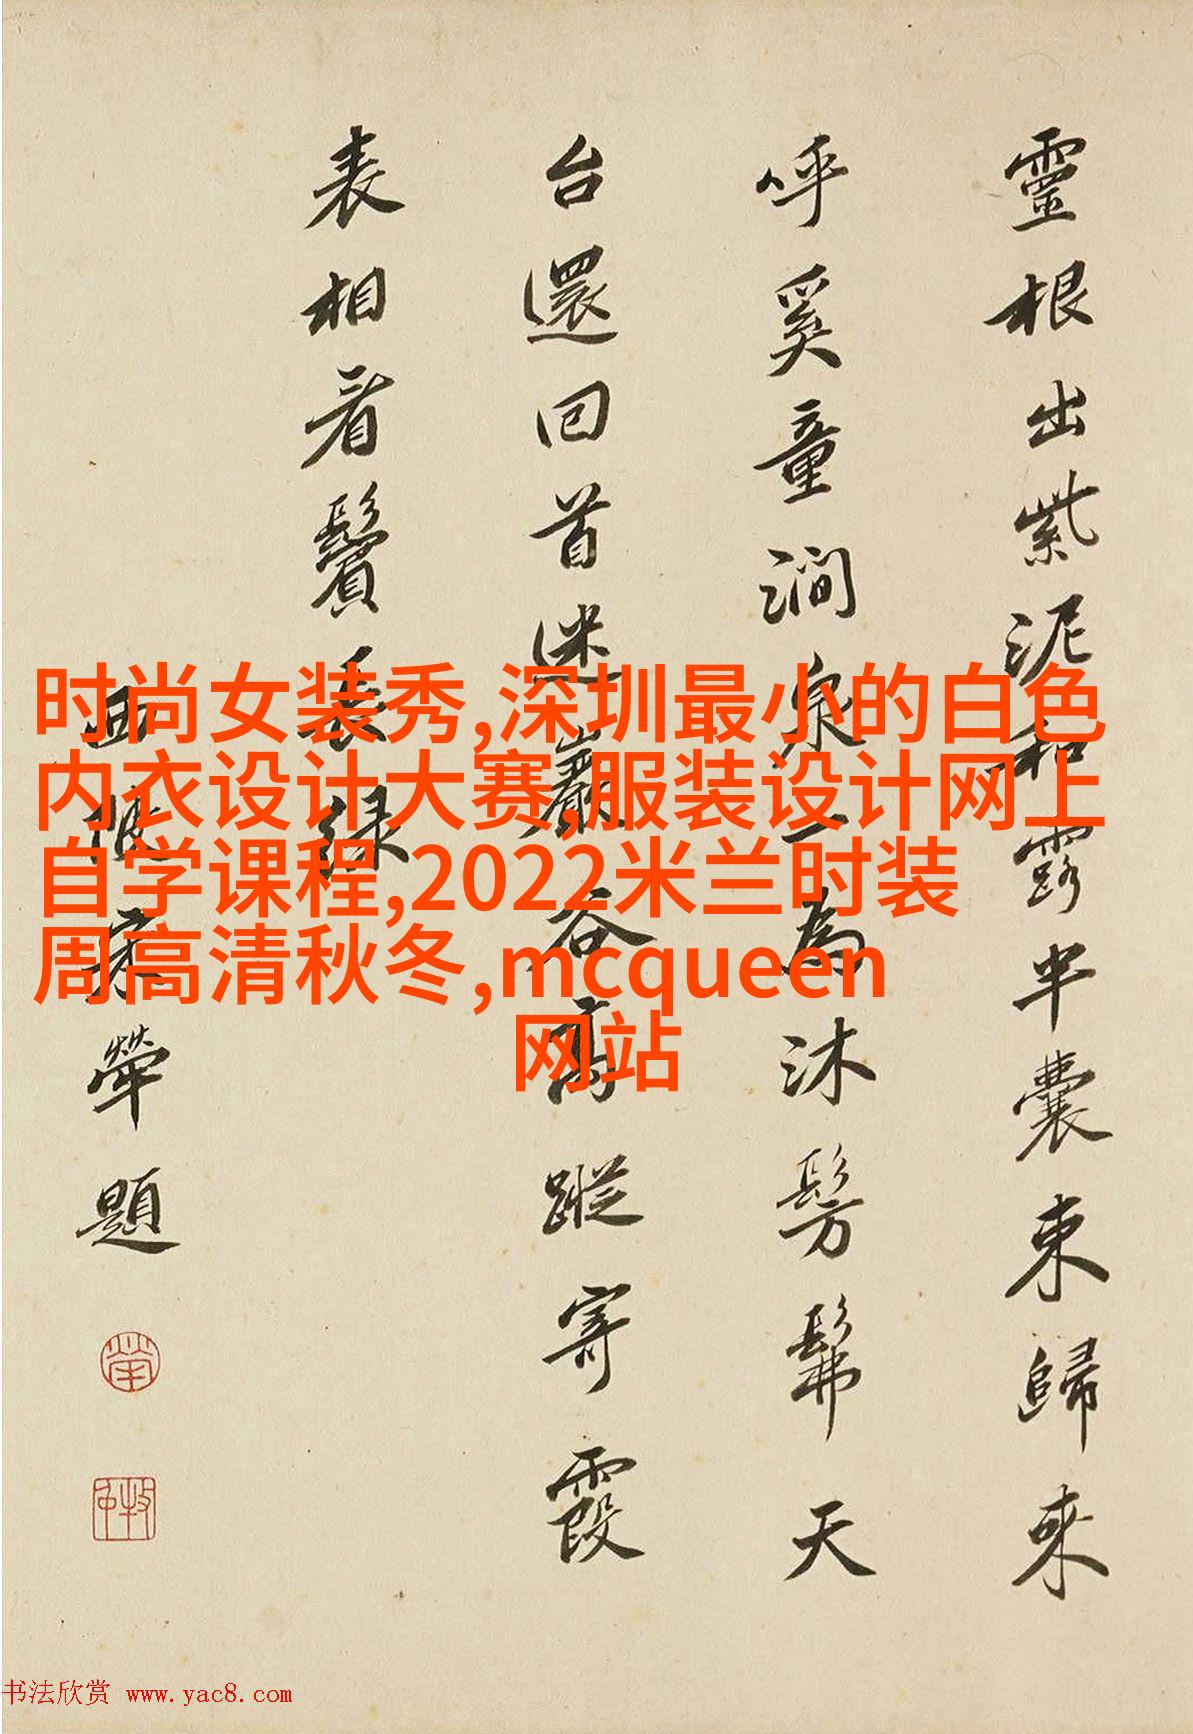 靈根出紫泥和露半囊束歸来
呼奚童澗泉一為沐髣髴天
台還回首迷巖谷高蹤寄霞
表相看鬢長緑
西陂宋犖題
时尚女装秀,深圳最小的白色
内衣设计大赛,服装设计网上
自学课程,2022米兰时装
周高清秋冬,mcqueen
网站
书法欣赏 www.yac8.com